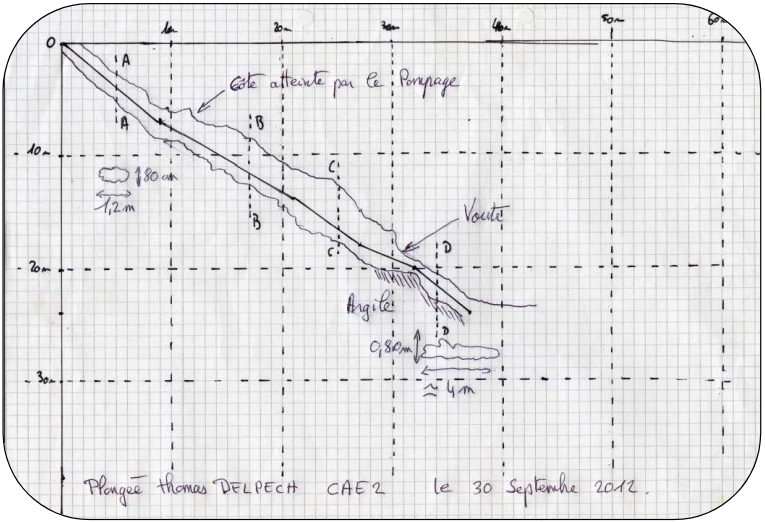 0 10m 20m 30m 40m 50m 60m
A
Côte atteinte par le Pompage
A
B
10m
C
80cm
1,2m
B
Voute
D
C
20m
Argile
D
0,80m
≈ 4m
30m
Plongée thomas DELPECH CAE2 le 30 Septembre 2012.